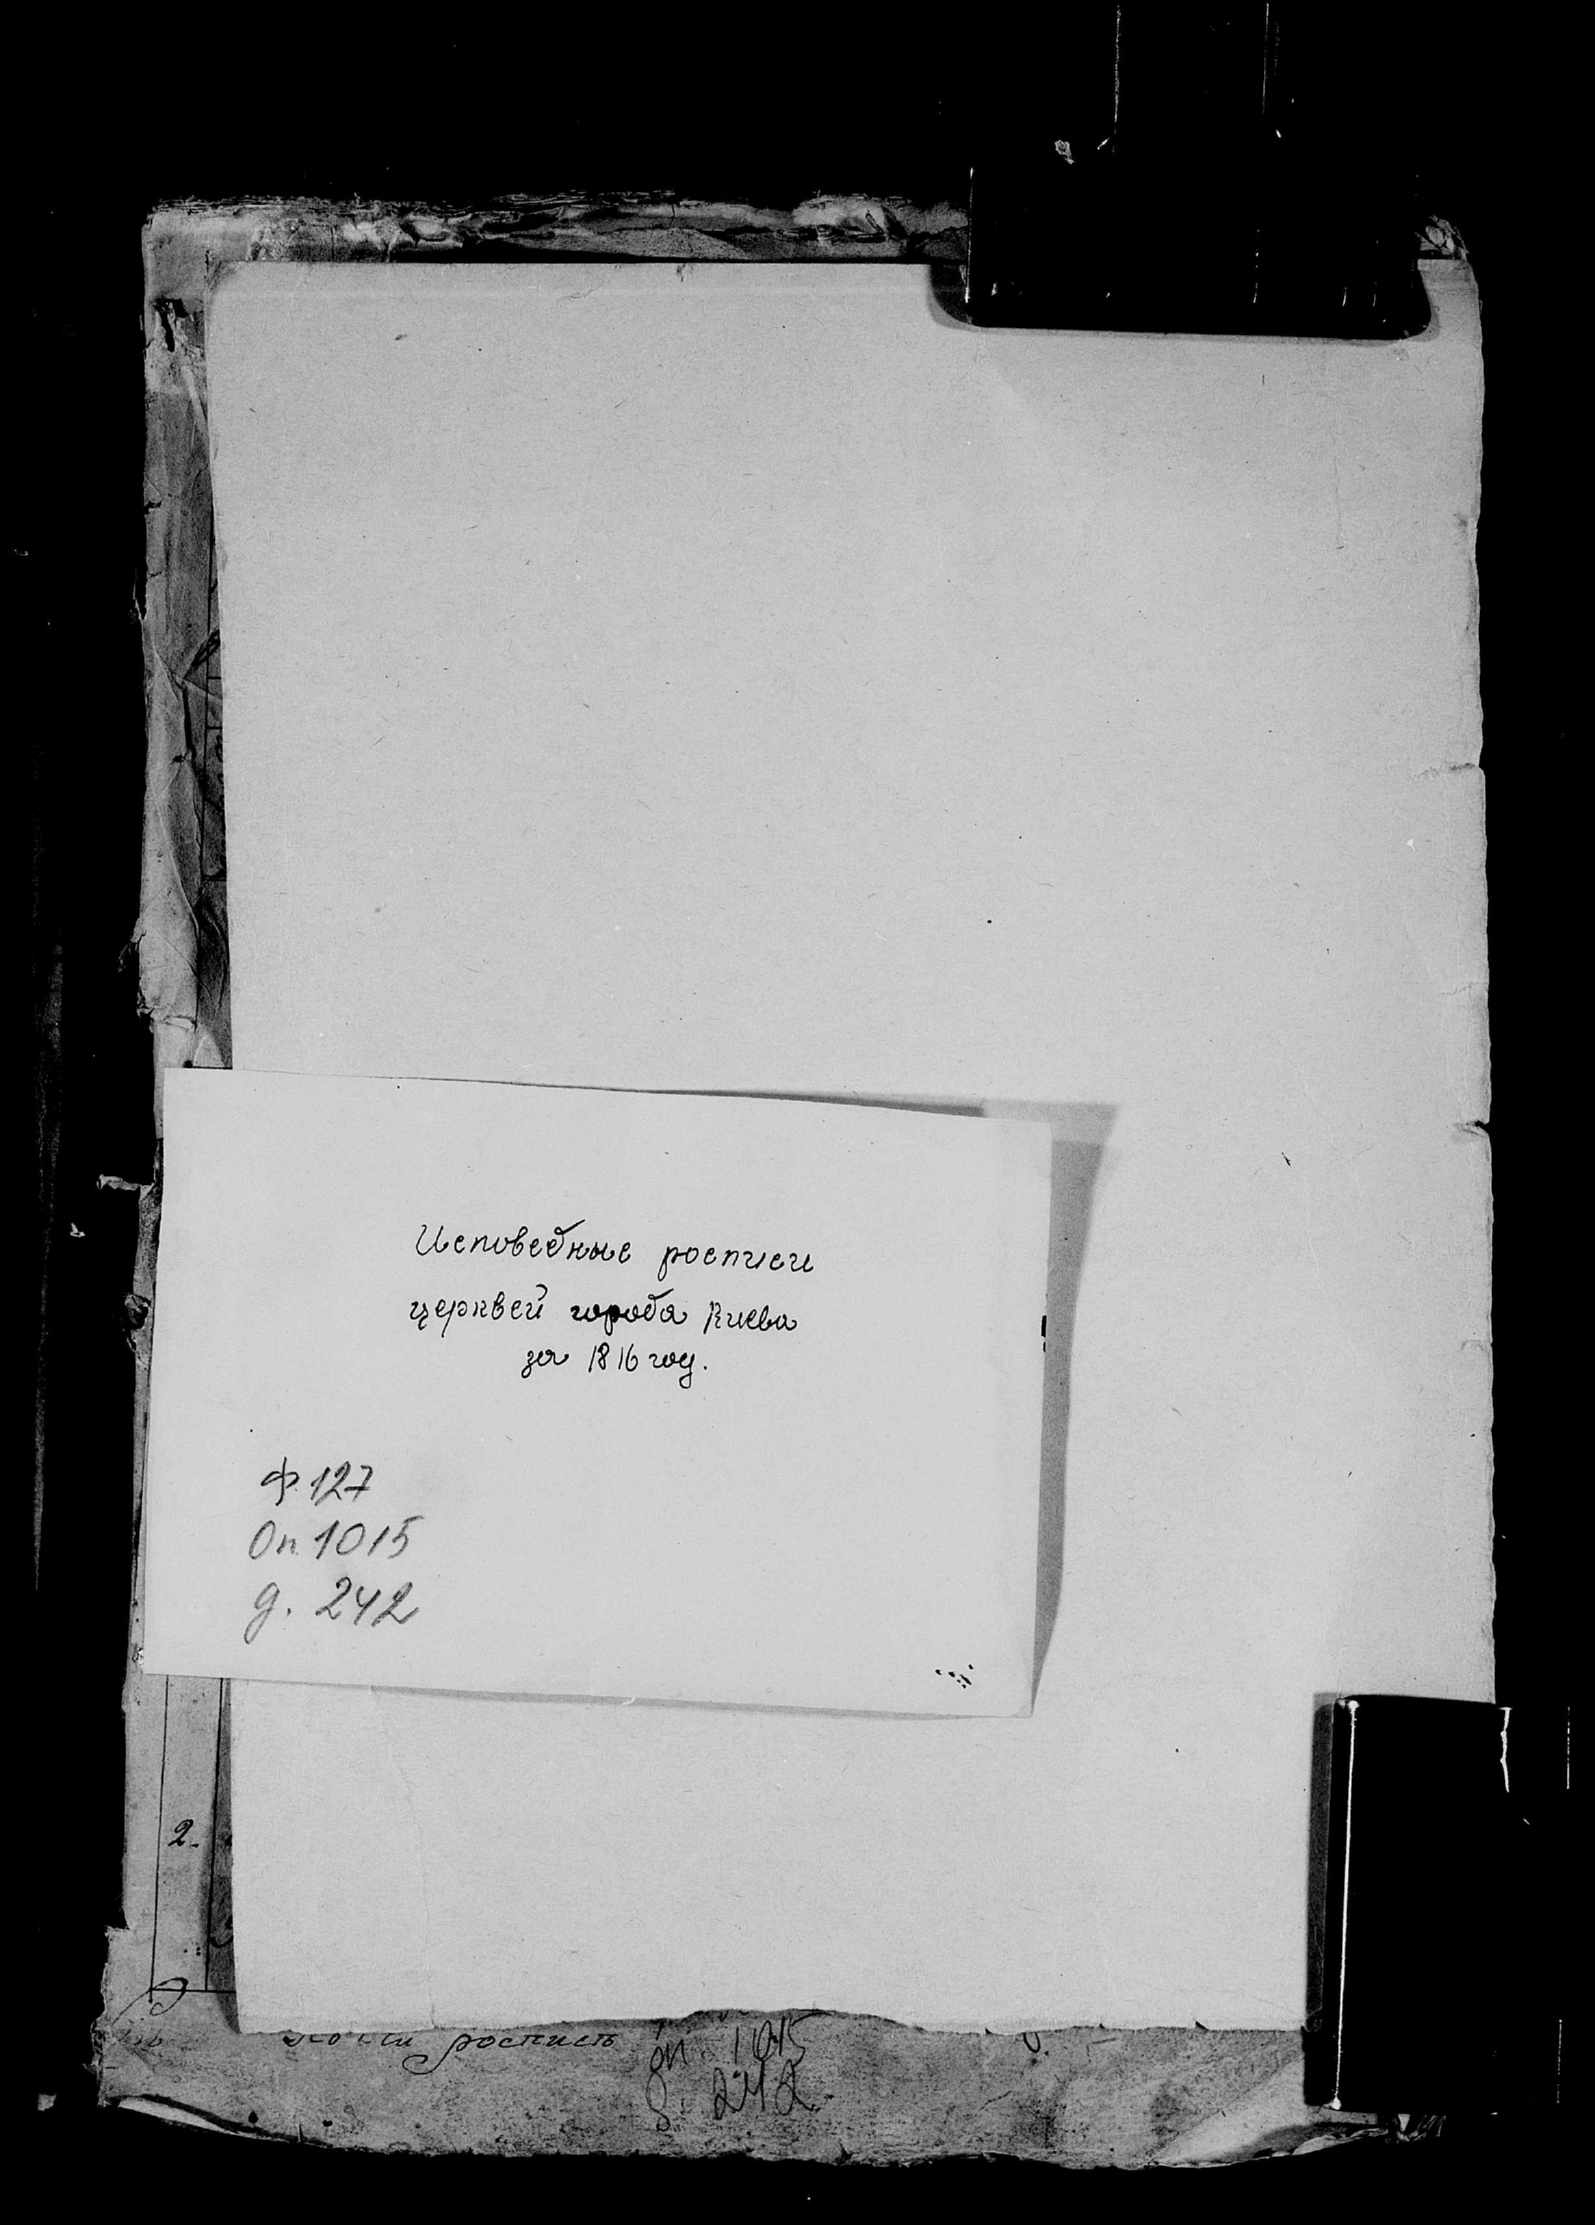 Исповедные росписи
церквей города Киева
за 1816 год.
Ф. 127
Оп. 1015
д. 242
2.
роспись
оп. 1015
д. 242